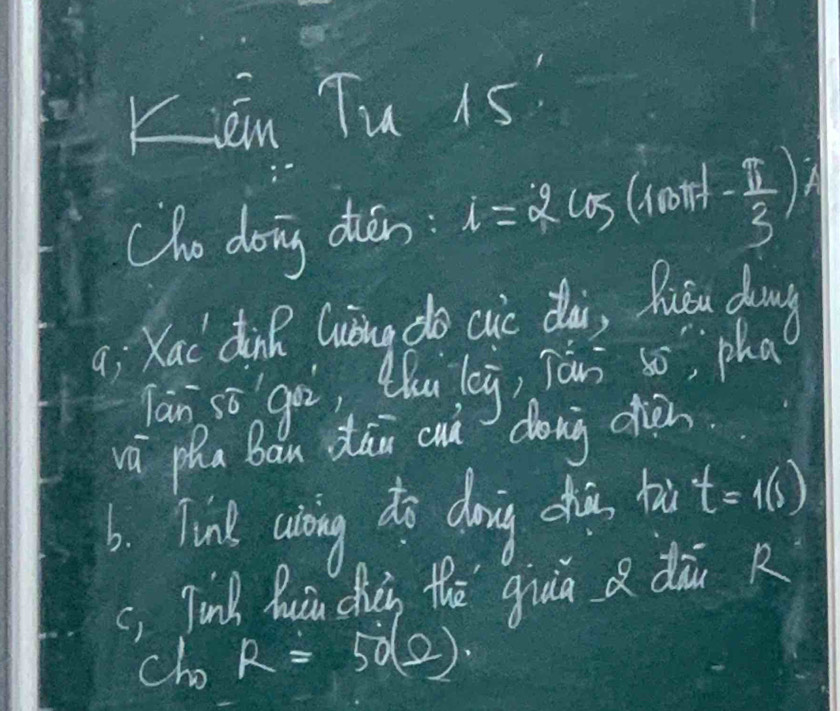 Kiểm Tra 15'
Cho dòng điện: i = 2 cos (100πt - π/3) A
a, Xác định Cường độ cực đại, hiệu dụng
Tần số góc, chu kỳ, Tần số, pha
và pha ban đầu của dòng điện.
b. Tính cường độ dòng điện tại t = 1(s)
c, Tính hiệu điện thế giữa 2 đầu R
Cho R = 50(Ω).